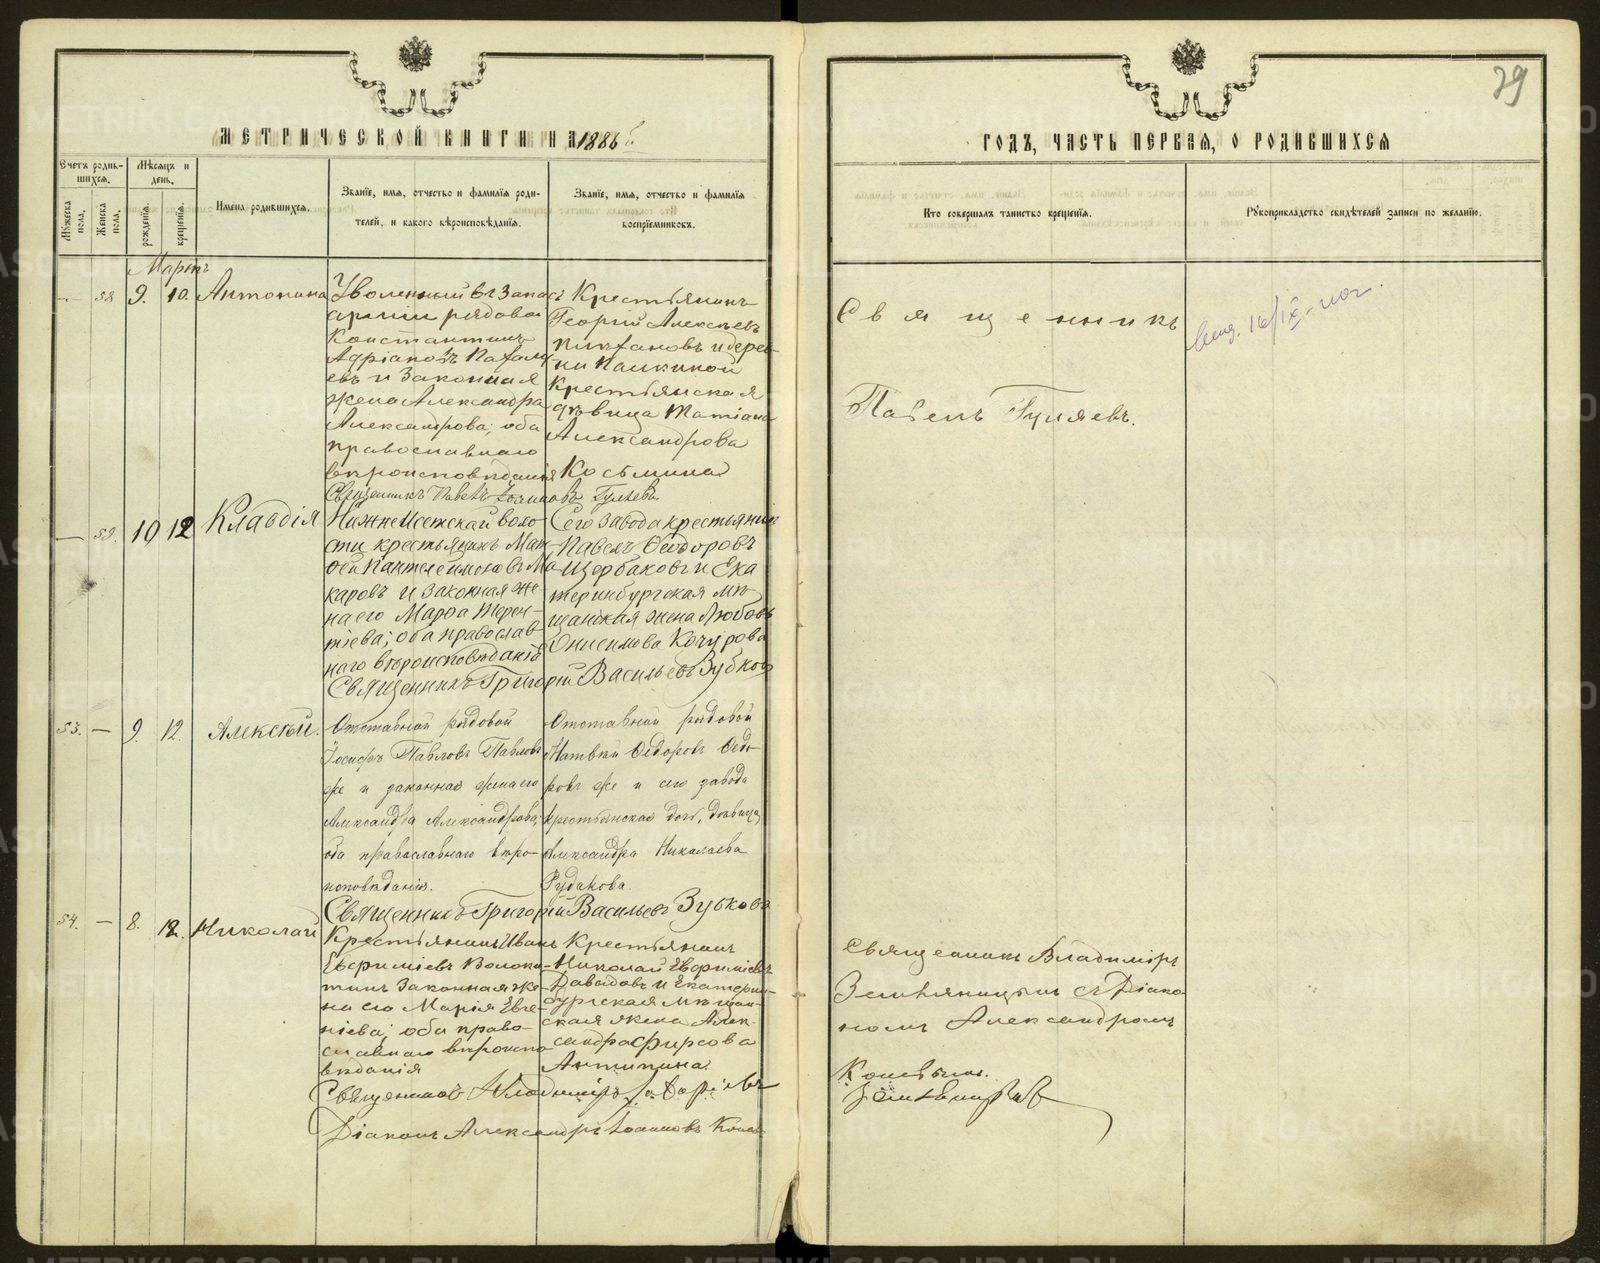 79
МЕТРИЧЕСКОЙ КНИГИ НА 1886
ГОДЪ, ЧАСТЬ ПЕРВАЯ, О РОДИВШИХСЯ
Счетъ родив-
шихся.
Мѣсяцъ и
день.
Мужеска
пола.
Женска
пола.
рожденія.
крещенія.
Имена родившихся.
Званіе, имя, отчество и фамилія роди-
телей, и какого вѣроисповѣданія.
Званіе, имя, отчество и фамилія
воспріемниковъ.
Кто совершалъ таинство крещенія.
Рукоприкладство свидѣтелей записи по желанію.
Мартъ
— 58 9. 10. Антонина
Уволенный въ запасъ
арміи рядовой
Константинъ
Адріановъ
евъ и законная
жена Александра
Александрова; оба
православнаго
вѣроисповѣданія
Крестьянинъ
Георгій Алексѣевъ
и дерев-
ни
Крестьянская
дѣвица Татіана
Александрова
Косьмина
Священникъ Павелъ Гуляевъ
Священникъ
Павелъ Гуляевъ.
— 59. 10 12 Клавдія
Нижнеисетской воло-
сти крестьянинъ Мат-
ѳей Пантелеймоновъ Ма-
каровъ и законная же-
на его Марѳа Терен-
тіева; оба православ-
наго вѣроисповѣданія
Сего завода крестьянинъ
Павелъ Ѳеодоровъ
Щербаковъ и Ека
теринбургская мѣ-
щанская жена Любовь
Онисимова Кочурова
Священникъ Григорій Васильевъ Зубковъ
53. — 9. 12. Алексѣй.
Отставной рядовой
Іосифъ Павловъ Павловъ
же и законная жена его
Александра Александрова;
оба православнаго вѣро-
исповѣданія.
Отставной рядовой
Матвѣй Ѳедоровъ Ѳедо-
ровъ же и сего завода
крестьянская дочь, дѣвица,
Александра Николаева
Рудакова.
Священникъ Григорій Васильевъ Зубковъ
54. — 8. 12. Николай
Крестьянинъ Иванъ
Евфиміевъ Волоки-
тинъ законная же-
на его Марія Евге-
ніева; оба право-
славнаго вѣроиспо
вѣданія
Крестьянинъ
Николай Евфиміевъ
Давыдовъ и Екатерин-
бургская мѣщан-
ская жена Алек-
сандра Фирсова
Антипина
Священникъ Владиміръ
Діаконъ Александръ Іоанновъ
Священникъ Владиміръ
Земляницынъ съ Діако-
номъ Александромъ